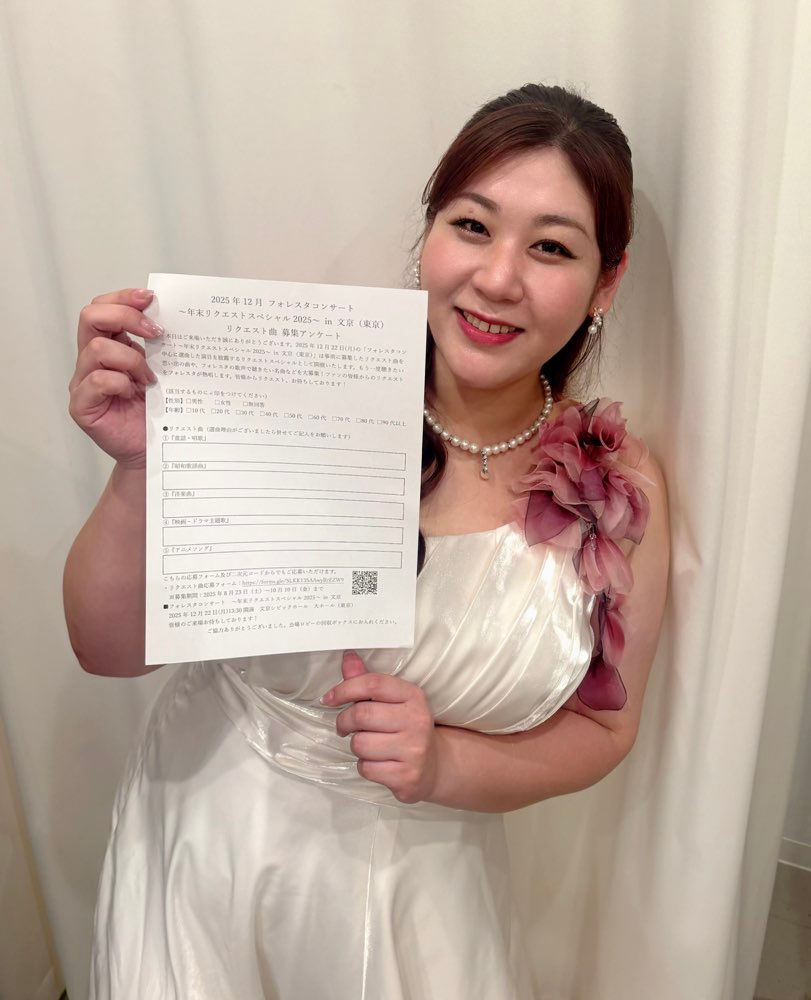 2025年12月 フォレスタコンサート
～年末リクエストスペシャル2025～ in 文京（東京）
リクエスト曲 募集アンケート
本日はご来場いただき誠にありがとうございます。2025年12月22日(月)の「フォレスタコン
サート～年末リクエストスペシャル2025～ in 文京（東京）」は事前に募集したリクエスト曲を
中心に選曲した演目を披露するリクエストスペシャルとして開催いたします。もう一度聴きたい
思い出の曲や、フォレスタの歌声で聴きたい名曲などを大募集！ファンの皆様からのリクエスト
をフォレスタが熱唱します。皆様からリクエスト、お待ちしております！
（該当するものに✓印をつけてください）
【性別】□男性 □女性 □無回答
【年齢】□10代 □20代 □30代 □40代 □50代 □60代 □70代 □80代 □90代以上
●リクエスト曲（選曲理由がございましたら併せてご記入をお願いします）
①『童謡・唱歌』
②『昭和歌謡曲』
③『洋楽曲』
④『映画・ドラマ主題歌』
⑤『アニメソング』
こちらの応募フォーム及び二次元コードからでもご応募いただけます。
・リクエスト曲応募フォーム：https://forms.gle/
※募集期間：2025年8月23日（土）～10月10日（金）まで
■フォレスタコンサート ～年末リクエストスペシャル2025～ in 文京
2025年12月22日(月)13:30開演 文京シビックホール 大ホール（東京）
皆様のご来場お待ちしております！
ご協力ありがとうございました。会場ロビーの回収ボックスにお入れください。